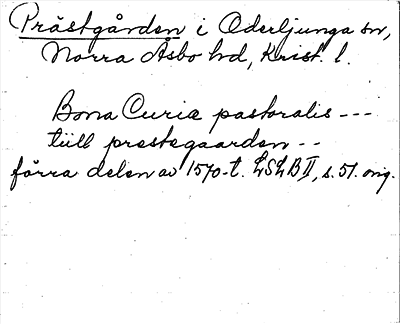 Prästgården i Oderljunga sn,
Norra Åsbo hd, Krist. l.
Bona Curiæ pastoralis ---
tiill prestegaarden --
förra delen av 1570-t. LSLB II, s. 51. orig.